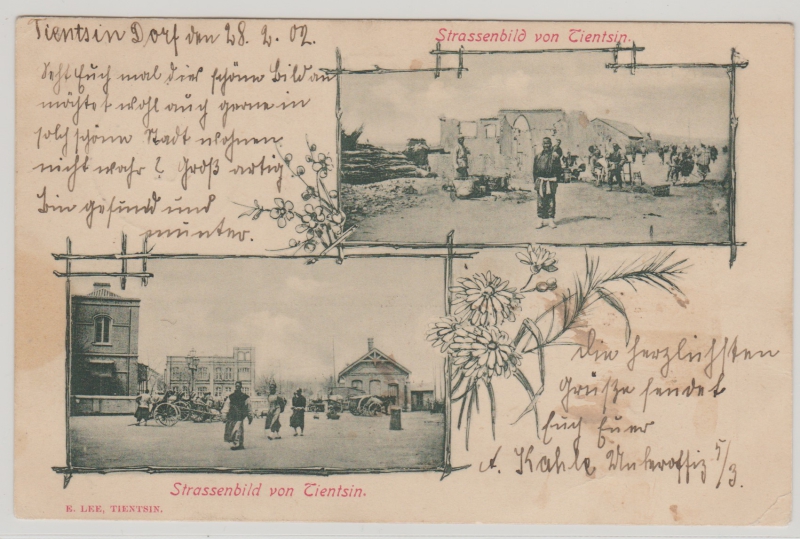 Tientsin Dorf den 28. 2. 02.
Strassenbild von Tientsin.
Seht Euch mal dies schöne Bild an
möchtet wohl auch gerne in
solch schöne Stadt wohnen
nicht wahr? Groß artig
Bin gesund und
munter.
Die herzlichsten
Grüße sendet
Euch Euer
A. Kahle Unteroffiz 5/3.
Strassenbild von Tientsin.
E. LEE, TIENTSIN.